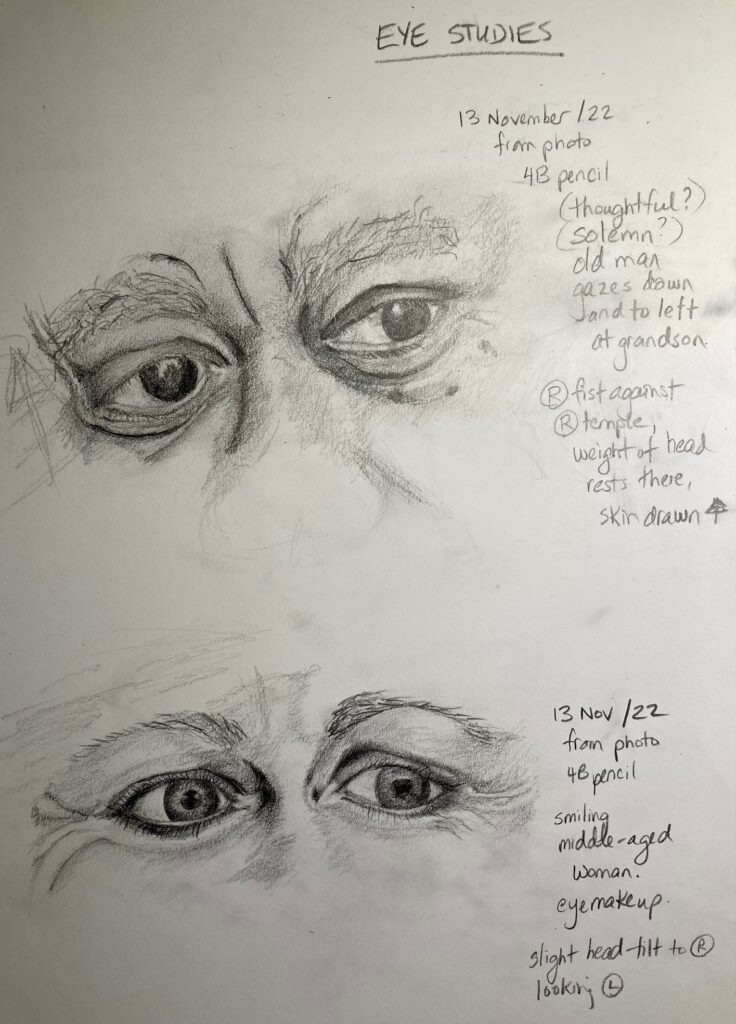 EYE STUDIES
13 November /22
from photo
4B pencil
(thoughtful?)
(solemn?)
old man
gazes down
and to left
at grandson.
Ⓡ fist against
Ⓡ temple,
weight of head
rests there,
skin drawn ↑
13 Nov /22
from photo
4B pencil
smiling
middle-aged
woman.
eyemakeup.
slight head-tilt to Ⓡ
looking Ⓛ